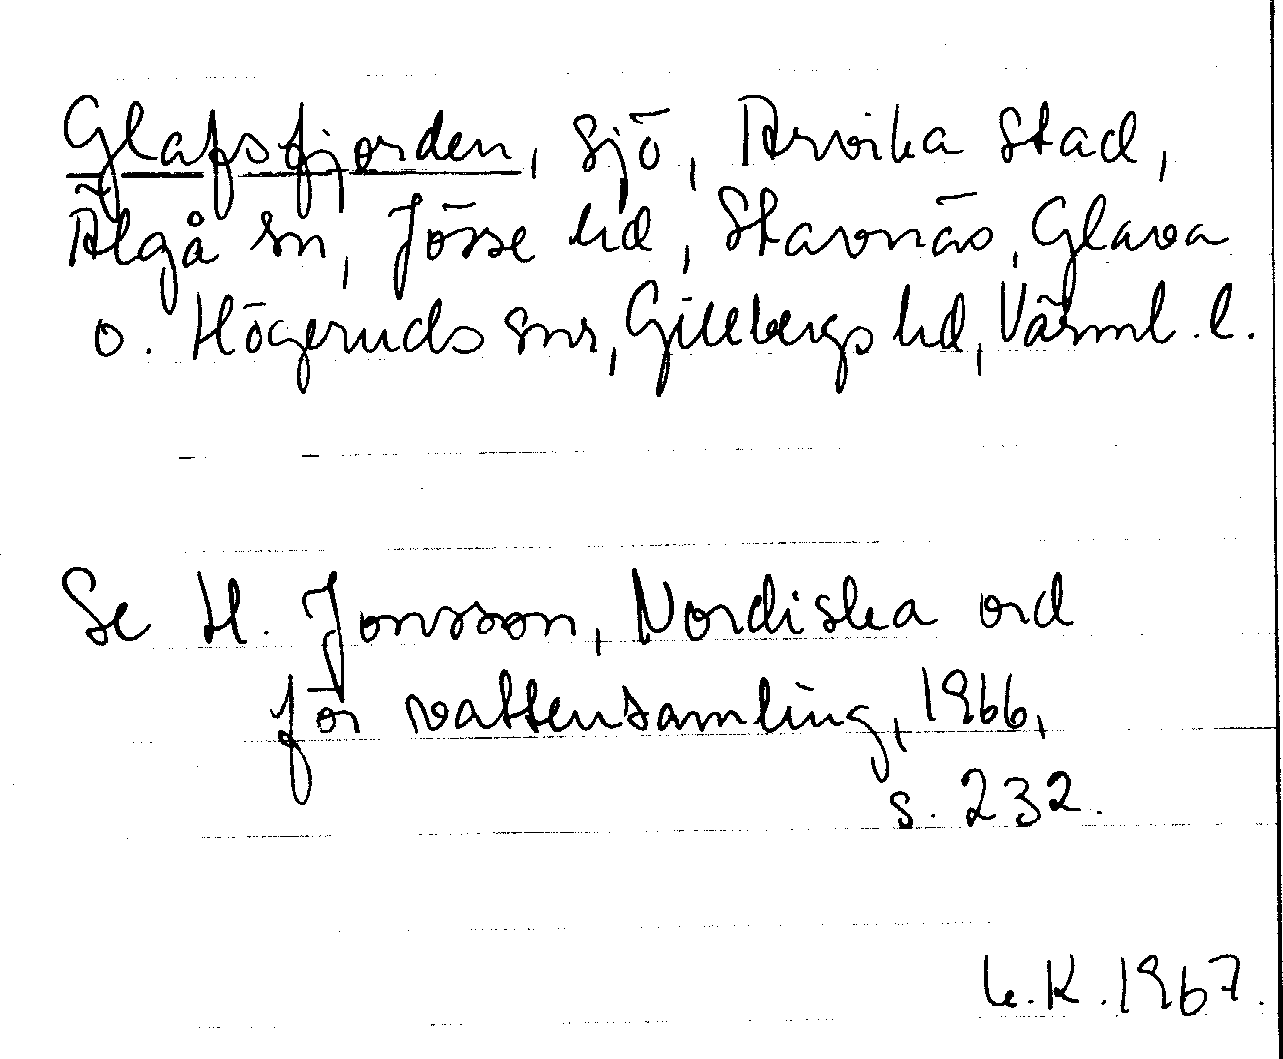 Glafsfjorden, sjö, Arvika stad,
Älgå sn, Jösse hd, Stavnäs, Glava
o. Högeruds snr, Gillbergs hd, Värml. l.
Se H. Jonsson, Nordiska ord
för vattensamling, 1966,
s. 232.
K. 1967.